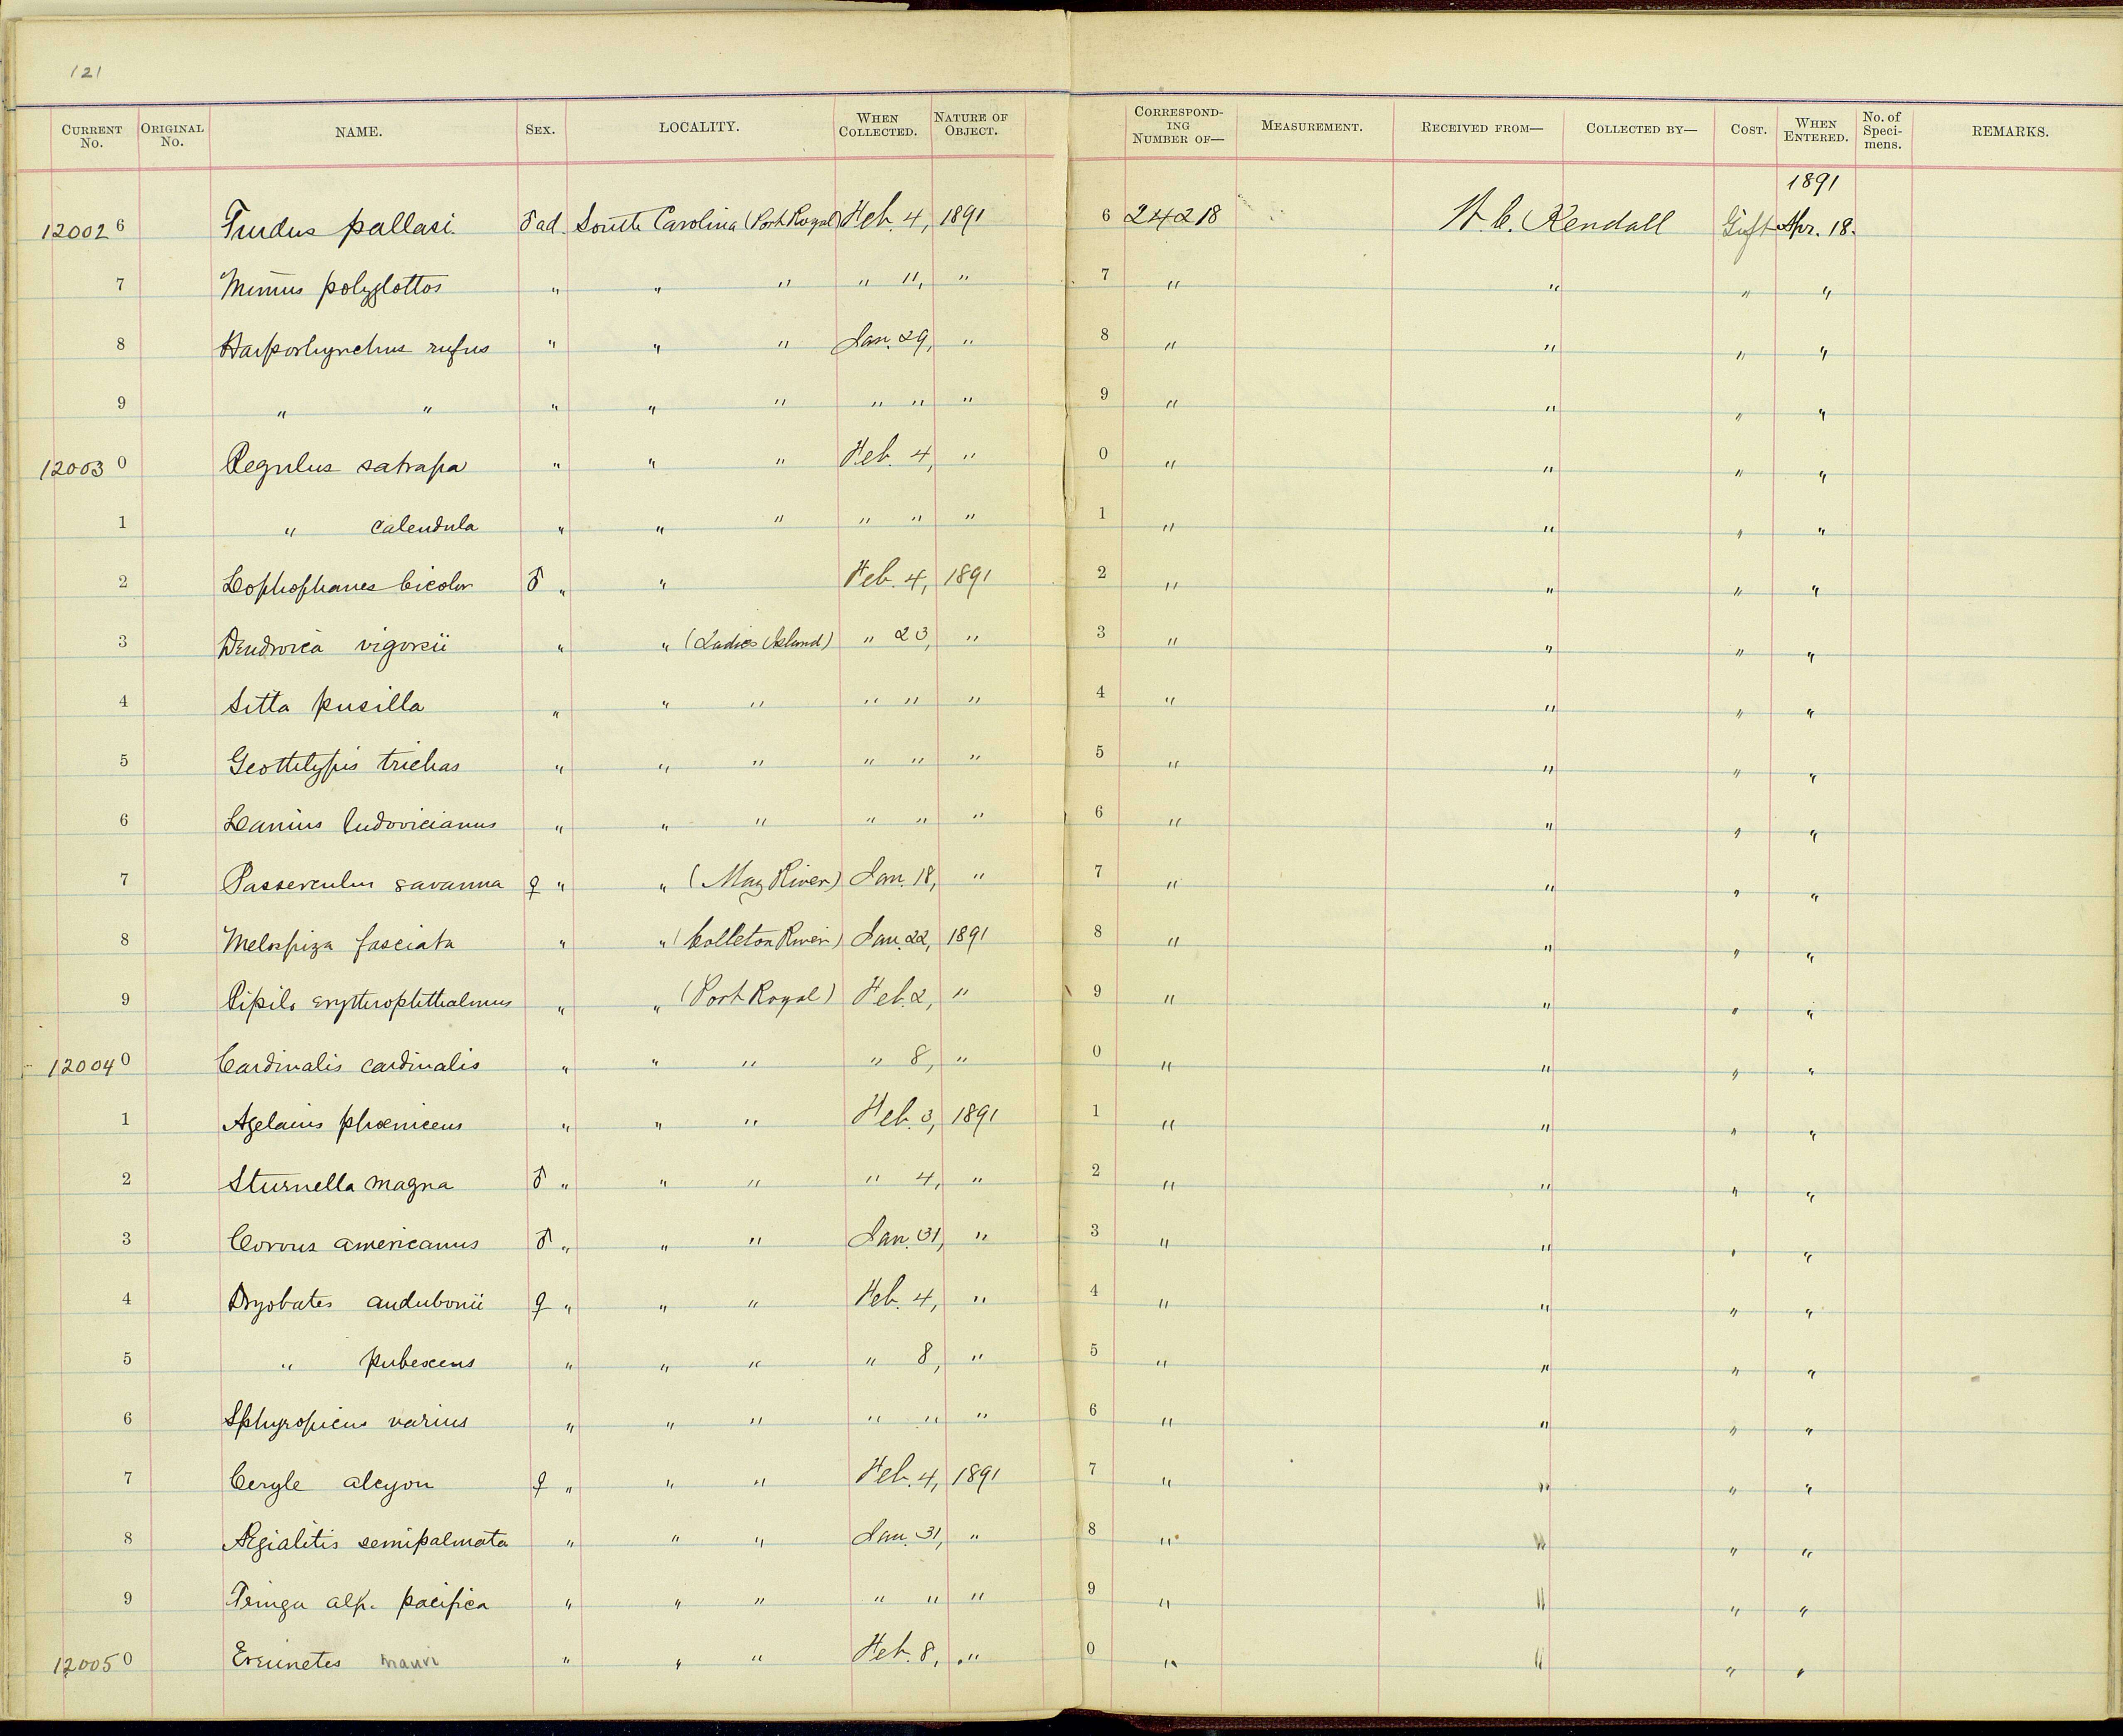 121
CURRENT No. ORIGINAL No. NAME. SEX. LOCALITY. WHEN COLLECTED. NATURE OF OBJECT. CORRESPOND-ING NUMBER OF— MEASUREMENT. RECEIVED FROM— COLLECTED BY— COST. WHEN ENTERED. No. of Speci-mens. REMARKS.
1891
12002 6 Turdus pallasi. ♂ ad. South Carolina (Port Royal) Feb. 4, 1891 6 24218 W. C. Kendall Gift Apr. 18.
7 Mimus polyglottos " " " " 11, " 7 " " " "
8 Harporhynchus rufus " " " Jan. 29, " 8 " " " "
9 " " " " " " " " 9 " " " "
12003 0 Regulus satrapa " " " Feb. 4, " 0 " " " "
1 " calendula " " " " " " 1 " " " "
2 Lophophanes bicolor ♂ " " Feb. 4, 1891 2 " " " "
3 Dendroica vigorsii " " (Ladies Island) " 23, " 3 " " " "
4 Sitta pusilla " " " " " " 4 " " " "
5 Geothlypis trichas " " " " " " 5 " " " "
6 Lanius ludovicianus " " " " " " 6 " " " "
7 Passerculus savanna ♀ " " (May River) Jan. 18, " 7 " " " "
8 Melospiza fasciata " " (Colleton River) Jan. 22, 1891 8 " " " "
9 Pipilo erythrophthalmus " " (Port Royal) Feb. 2, " 9 " " " "
12004 0 Cardinalis cardinalis " " " " 8, " 0 " " " "
1 Agelaius phœniceus " " " Feb. 3, 1891 1 " " " "
2 Sturnella magna ♂ " " " " 4, " 2 " " " "
3 Corvus americanus ♂ " " " Jan. 31, " 3 " " " "
4 Dryobates audubonii ♀ " " " Feb. 4, " 4 " " " "
5 " pubescens " " " " 8, " 5 " " " "
6 Sphyropicus varius " " " " " " 6 " " " "
7 Ceryle alcyon ♀ " " " Feb. 4, 1891 7 " " " "
8 Ægialitis semipalmata " " " Jan. 31, " 8 " " " "
9 Tringa alp. pacifica " " " " " " 9 " " " "
12005 0 Ereunetes mauri " " " Feb. 8, " 0 " " " "